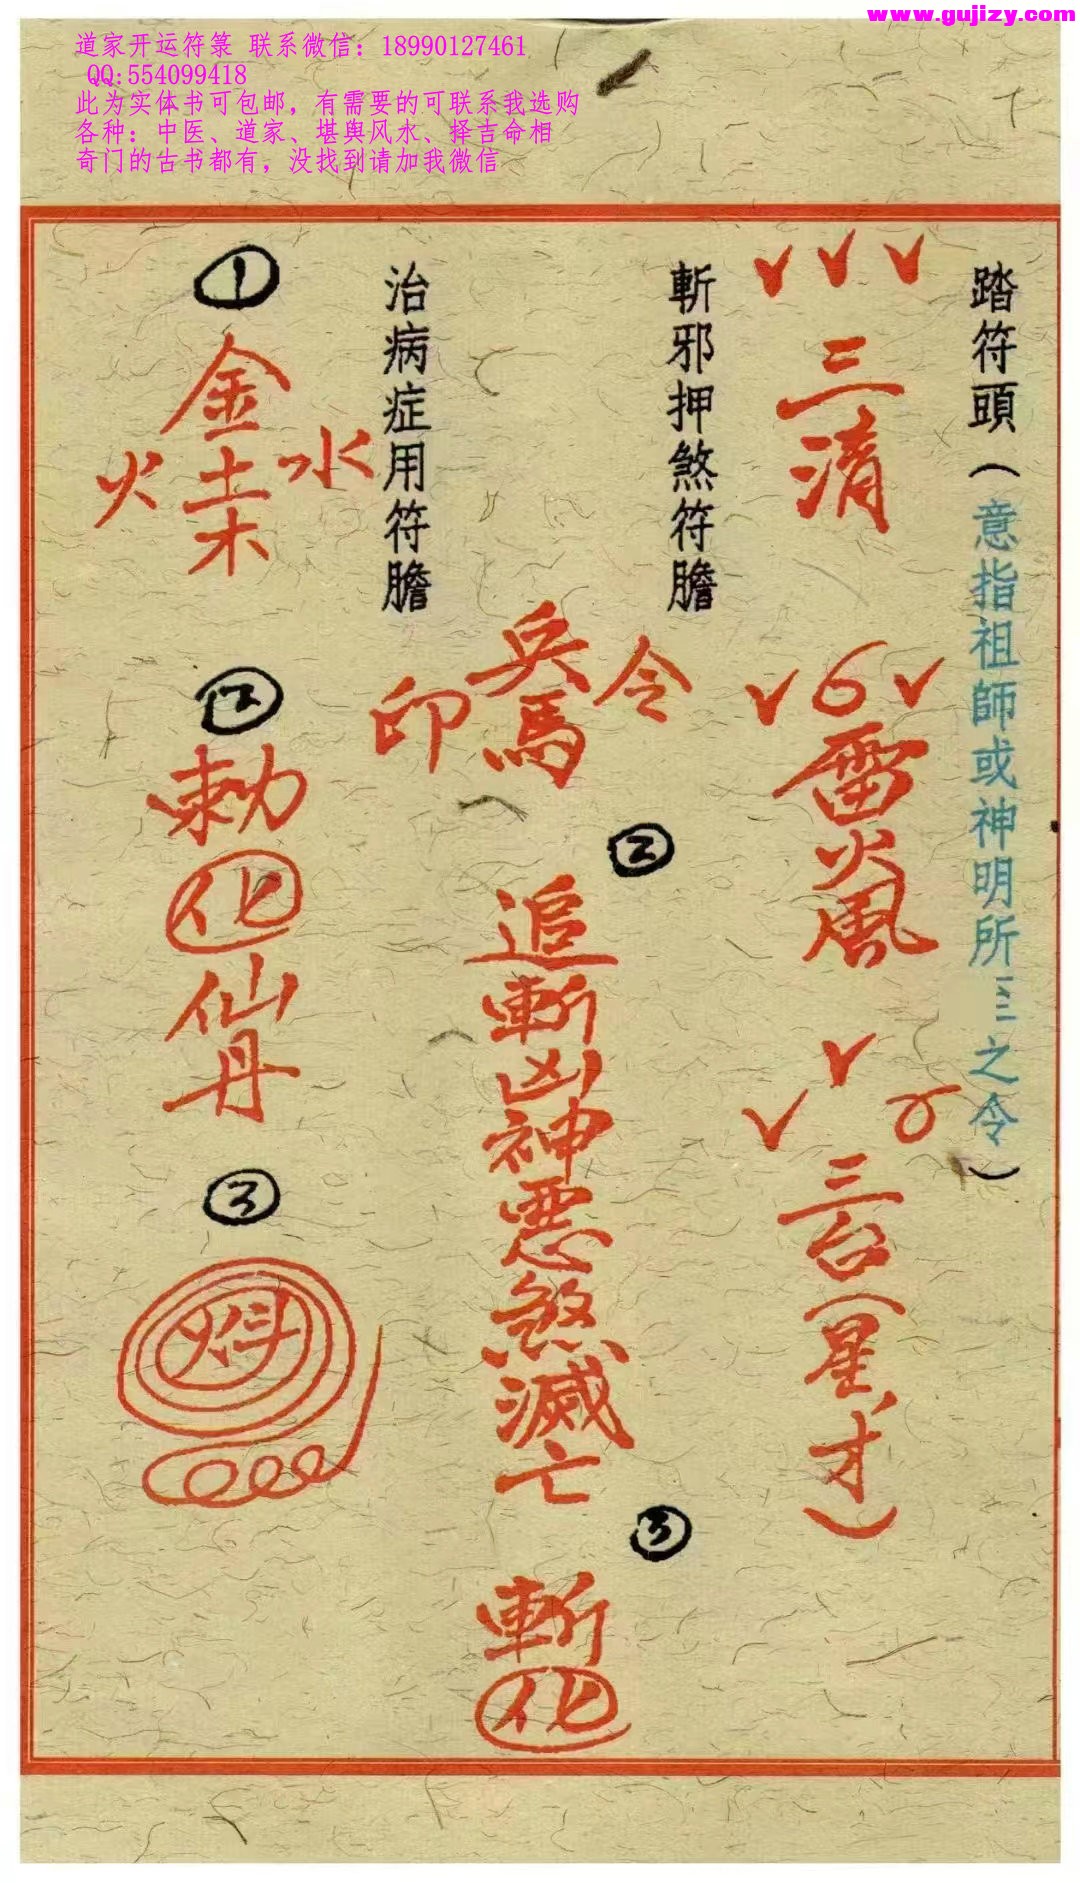 www.gujizy.com
道家开运符箓 联系微信：18990127461
QQ:554099418
此为实体书可包邮，有需要的可联系我选购
各种：中医、道家、堪舆风水、择吉命相
奇门的古书都有，没找到请加我微信
踏符頭（意指祖師或神明所之令）
三清
雷火風
三台（星、才）
斬邪押煞符膽
令
兵馬
印
②
追斬凶神惡煞滅亡
③
斬化
治病症用符膽
①
金
水
土
火
木
②
勅化仙丹
③